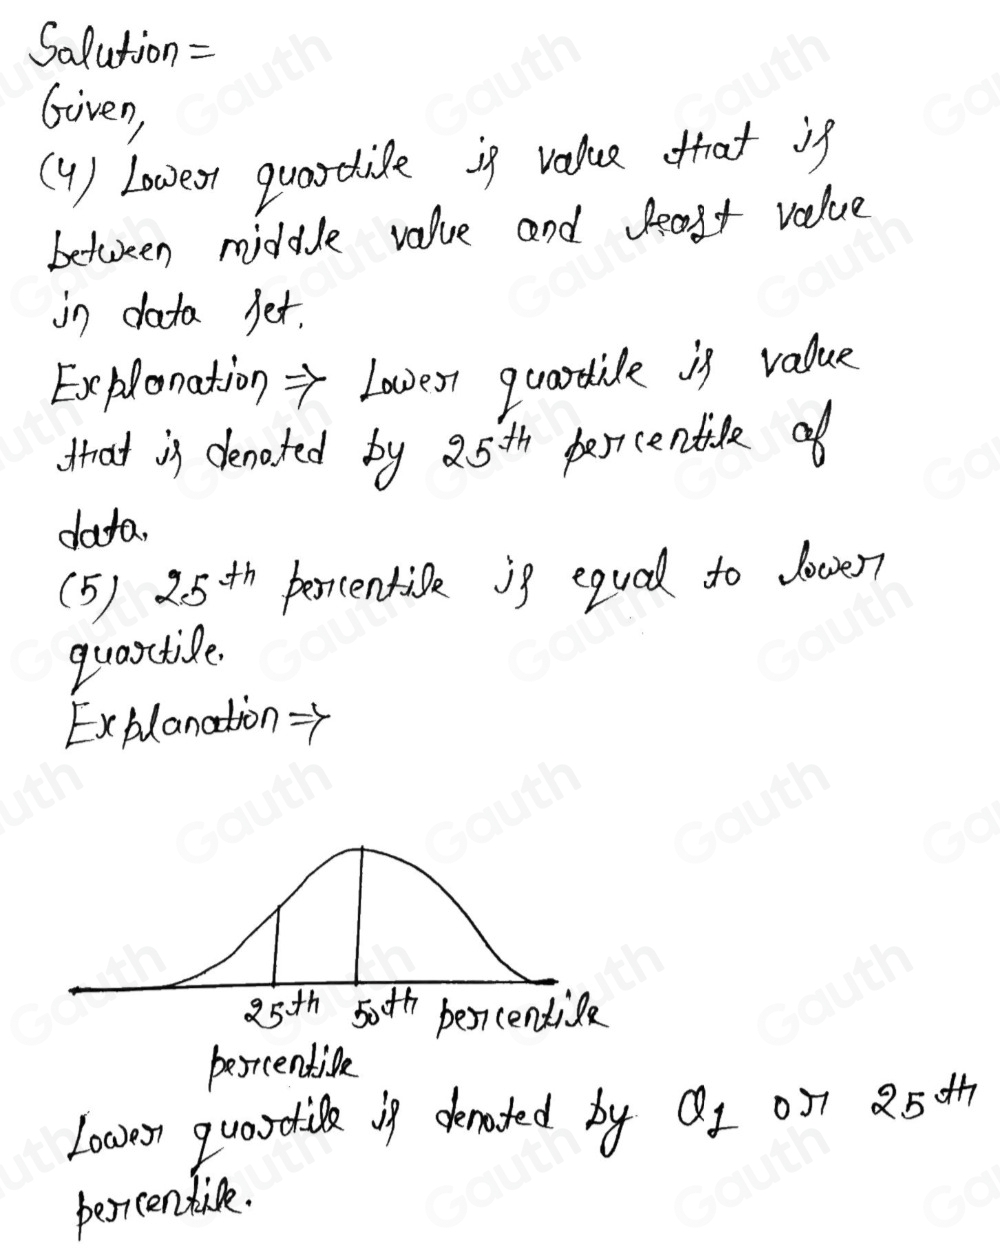 Solution =
Given,
(4) Lower quartile is value that is
between middle value and least value
in data set.
Explanation ⇒ Lower quartile is value
that is denoted by 25th percentile of
data.
(5) 25th percentile is equal to lower
quartile.
Explanation ⇒
25th 50th percentile
percentile
Lower quartile is denoted by Q1 or 25th
percentile.